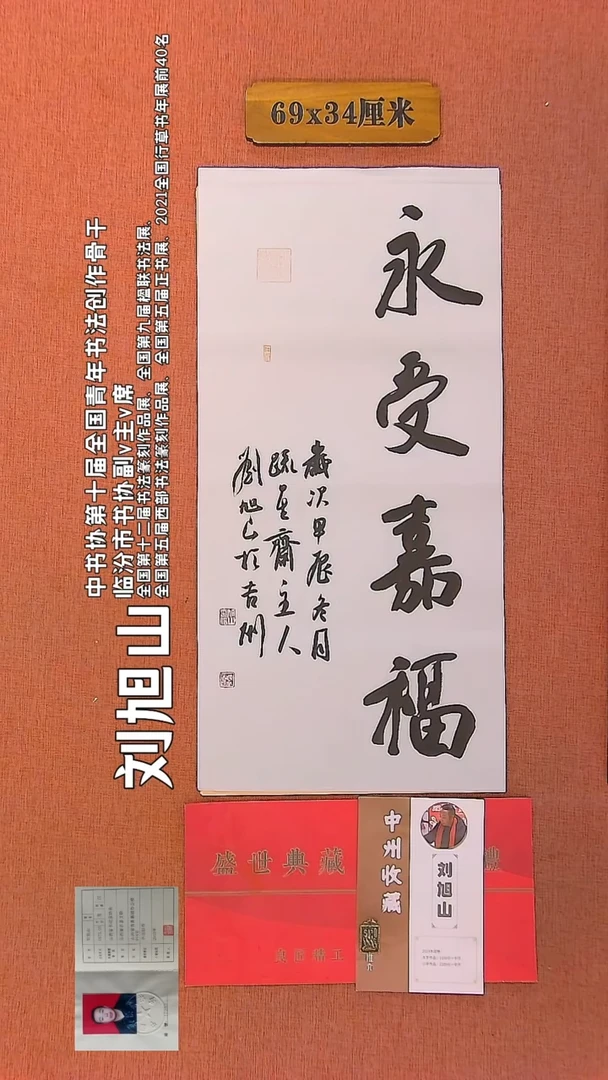 69x34厘米
永受嘉福
歲次甲辰冬月
疏星齋主人
劉旭山於吉州
刘旭山
中书协第十届全国青年书法创作骨干
临汾市书协副v主v席
全国第十二届书法篆刻作品展、全国第九届楹联书法展、
全国第五届西部书法篆刻作品展、全国第五届正书展、2021全国行草书年展前40名
盛世典藏
中州收藏
刘旭山